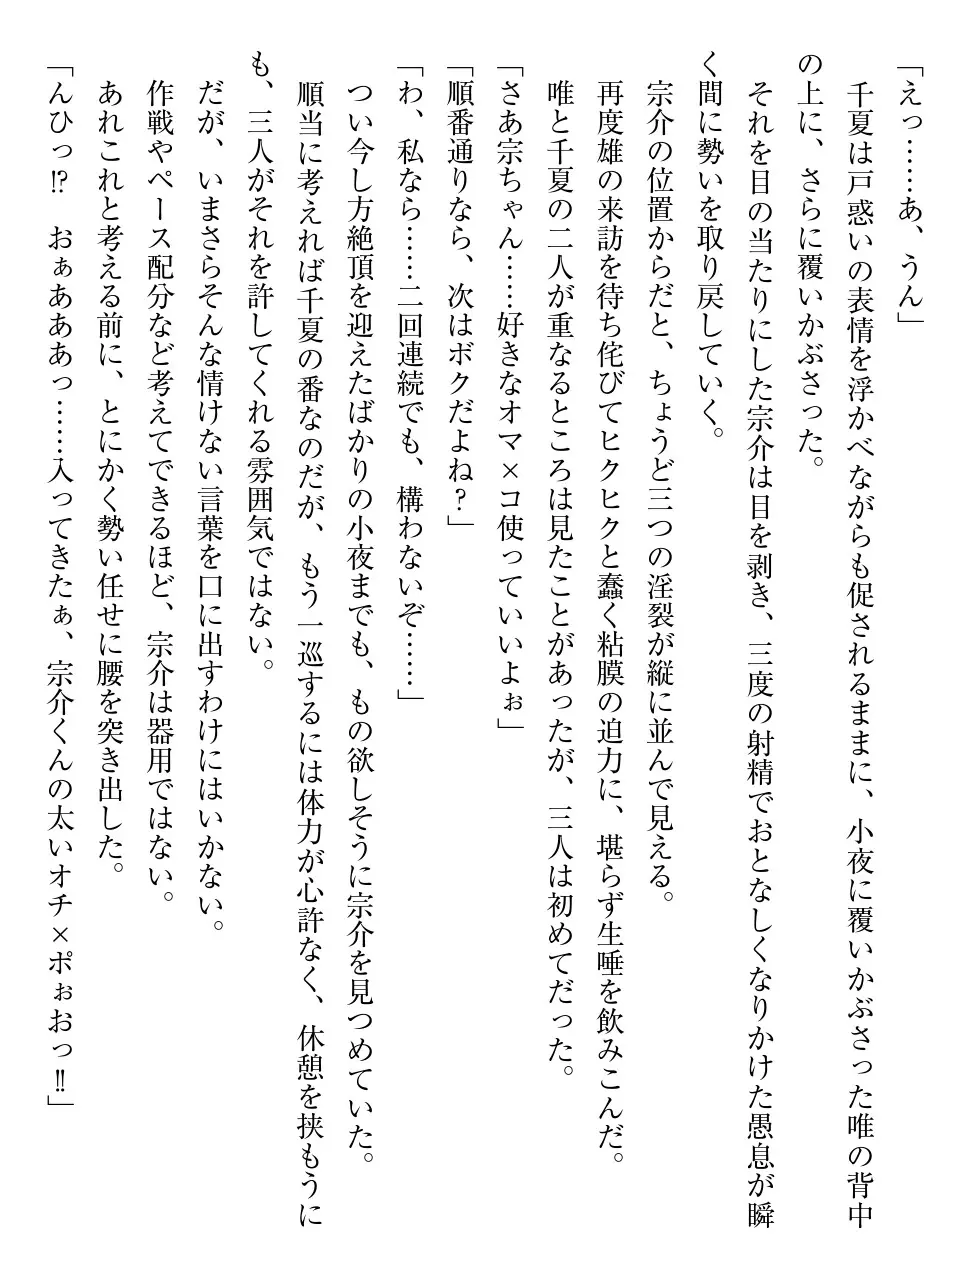 「えっ……あ、うん」
　千夏は戸惑いの表情を浮かべながらも促されるままに、小夜に覆いかぶさった唯の背中
の上に、さらに覆いかぶさった。
　それを目の当たりにした宗介は目を剥き、三度の射精でおとなしくなりかけた愚息が瞬
く間に勢いを取り戻していく。
　宗介の位置からだと、ちょうど三つの淫裂が縦に並んで見える。
　再度雄の来訪を待ち侘びてヒクヒクと蠢く粘膜の迫力に、堪らず生唾を飲みこんだ。
　唯と千夏の二人が重なるところは見たことがあったが、三人は初めてだった。
「さあ宗ちゃん……好きなオマ×コ使っていいよぉ」
「順番通りなら、次はボクだよね？」
「わ、私なら……二回連続でも、構わないぞ……」
　つい今し方絶頂を迎えたばかりの小夜までも、もの欲しそうに宗介を見つめていた。
　順当に考えれば千夏の番なのだが、もう一巡するには体力が心許なく、休憩を挟もうに
も、三人がそれを許してくれる雰囲気ではない。
　だが、いまさらそんな情けない言葉を口に出すわけにはいかない。
　作戦やペース配分など考えてできるほど、宗介は器用ではない。
　あれこれと考える前に、とにかく勢い任せに腰を突き出した。
「んひっ⁉　おぁあああっ……入ってきたぁ、宗介くんの太いオチ×ポぉおっ‼」